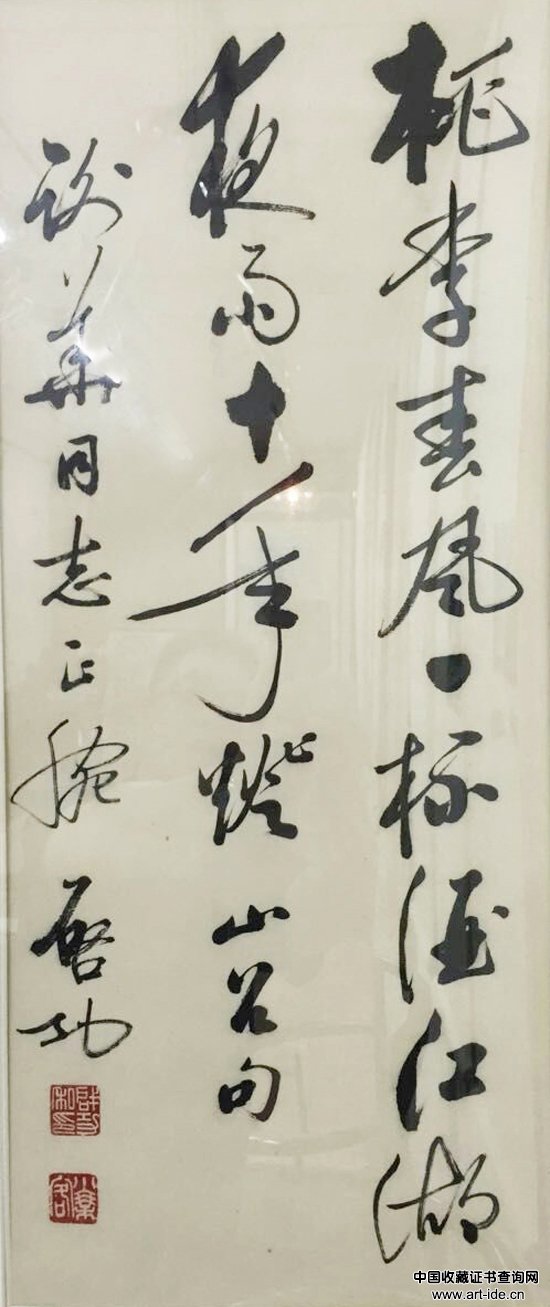 桃李春風一杯酒江湖
夜雨十年燈 山谷句
謝華同志正腕 啓功
啓功私印
中国收藏证书查询网
www.art-ide.cn